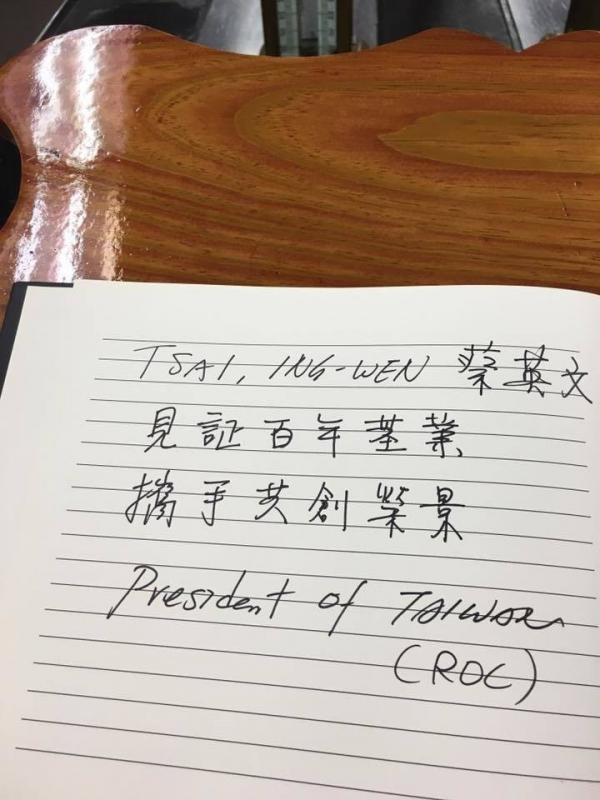 TSAI, ING-WEN 蔡英文
見証百年基業
攜手共創榮景
President of TAIWAN
(ROC)